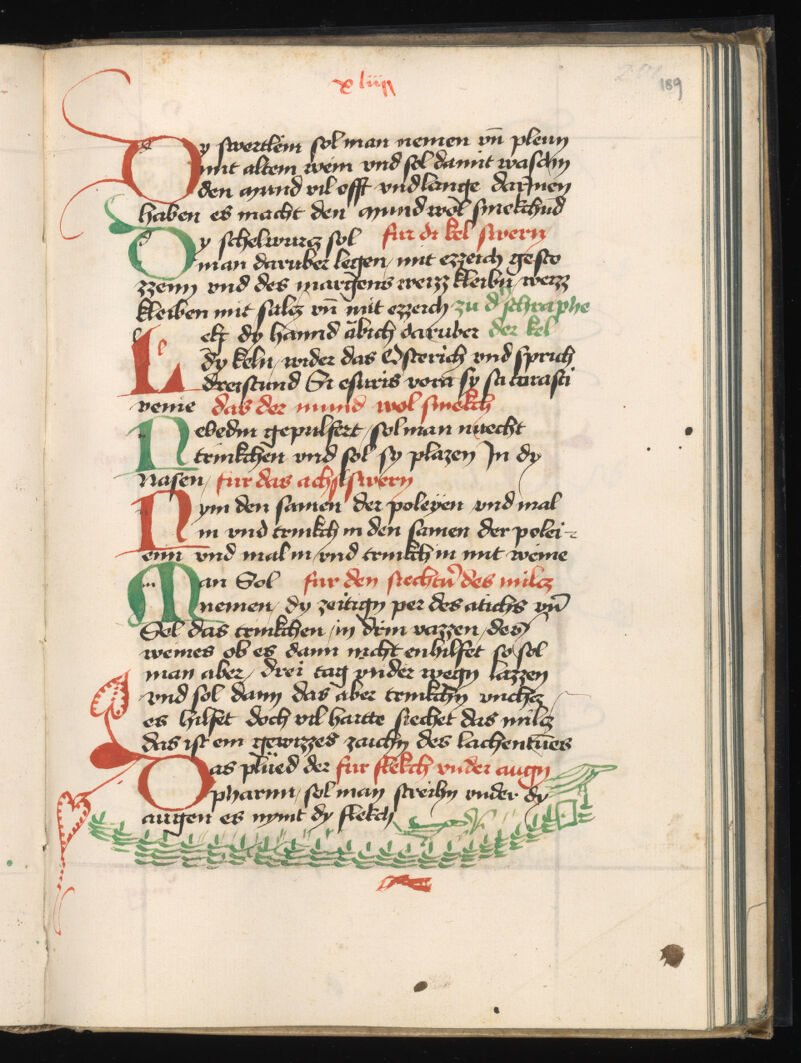 xliiij
189
Dy swertlein sol man nemen vn̄ pleun
mit altem wein vnd sol damit waschn
den mund vil offt vnd lange darinen
haben es macht den mund wol smekchnd
Dy schelwurcz sol fur di kel swern
man daruber legen / mit ezzeich gesto
zzenn vnd des margens weizz kleibn weizz
kleiben mit salcz vn̄ mit ezzeich zu d' schraphe
Leg dy hannd abich daruber der kel
dy keln / wider das Osterich vnd sprich
dreistund Si esuris vora sy
venie das der mund wol smekch
Nebedm gepulfert / sol man nuecht
trinkchen vnd sol sy plazen In dy
Nasen / fur das achslswern
Nym den samen der poleyen vnd mal
in vnd trinkch in den samen der polei-
enn vnd mal in / vnd trinkch in mit weine
Man Sol fur den siechtu̅ des milcz
nemen / dy zeitign per des atichs vn̄
Sol das trinkchen / in drin vazzen / des
weines ob es dann nicht enhilfet so sol
man aber / drei tag vnder wegn lazzen
vnd sol dann das aber trinkchn vnchcz
es hilfet doch vil hartte siechet das milcz
das ist ein gewizzes zaichn des lachentu̅es
Das plued der fur flekch vnder augn
pharnn / sol man streibn vnder dy
augen es nymt dy flekch